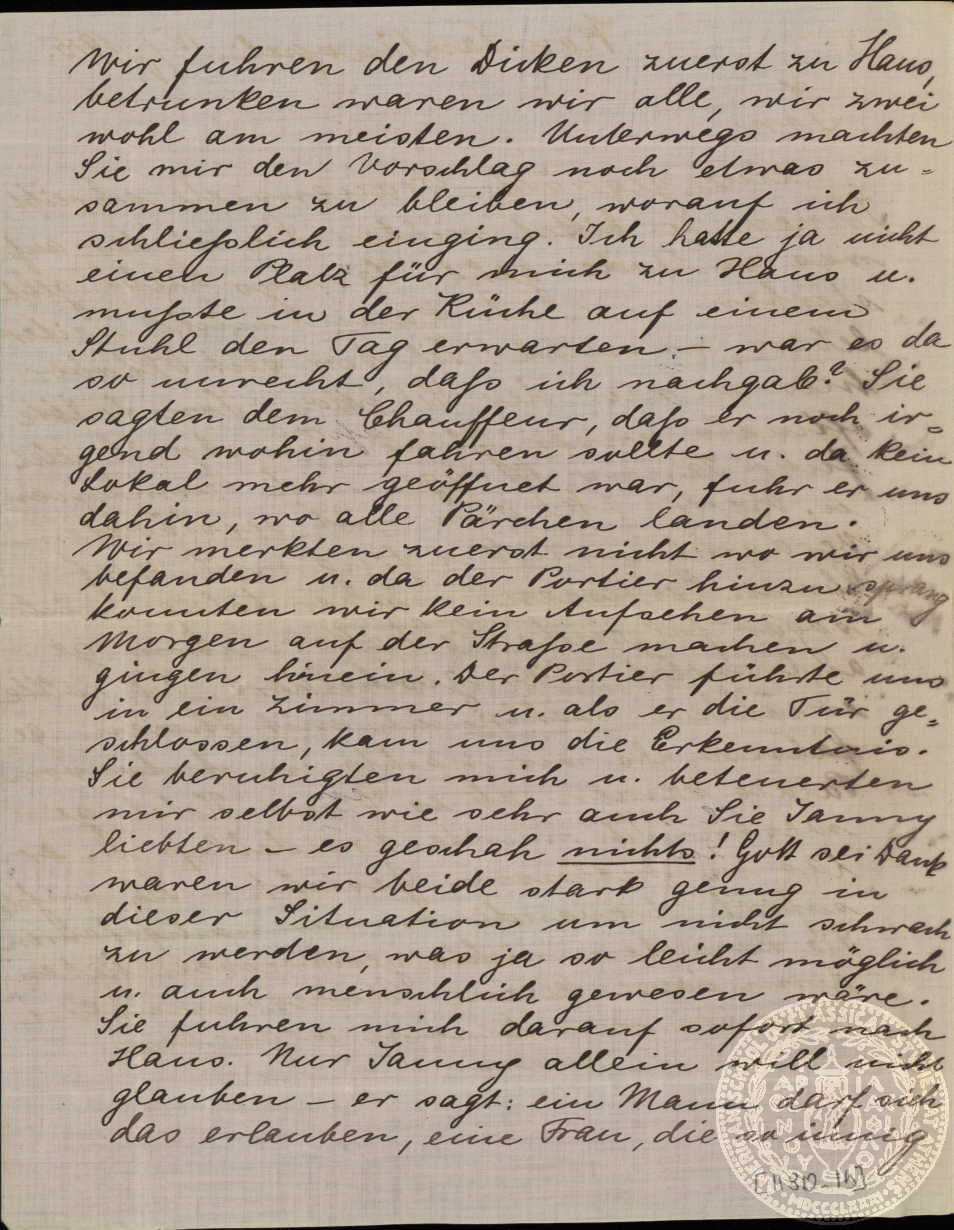 Wir fuhren den Dicken zuerst zu Haus,
betrunken waren wir alle, wir zwei
wohl am meisten. Unterwegs machten
Sie mir den Vorschlag noch etwas zu=
sammen zu bleiben, worauf ich
schließlich einging. Ich hatte ja nicht
einen Platz für mich zu Haus u.
mußte in der Küche auf einem
Stuhl den Tag erwarten – war es da
so unrecht, daß ich nachgab? Sie
sagten dem Chauffeur, daß er noch ir=
gend wohin fahren sollte u. da kein
Lokal mehr geöffnet war, fuhr er uns
dahin, wo alle Pärchen landen.
Wir merkten zuerst nicht wo wir uns
befanden u. da der Portier hinzu sprang
konnten wir kein Aufsehen am
Morgen auf der Straße machen u.
gingen hinein. Der Portier führte uns
in ein Zimmer u. als er die Tür ge=
schlossen, kam uns die Erkenntnis.
Sie beruhigten mich u. beteuerten
mir selbst wie sehr auch Sie Janny
liebten – es geschah nichts! Gott sei Dank
waren wir beide stark genug in
dieser Situation um nicht schwach
zu werden, was ja so leicht möglich
u. auch menschlich gewesen wäre.
Sie fuhren mich darauf sofort nach
Haus. Nur Janny allein will nicht
glauben – er sagt: ein Mann darf sich
das erlauben, eine Frau, die so innig